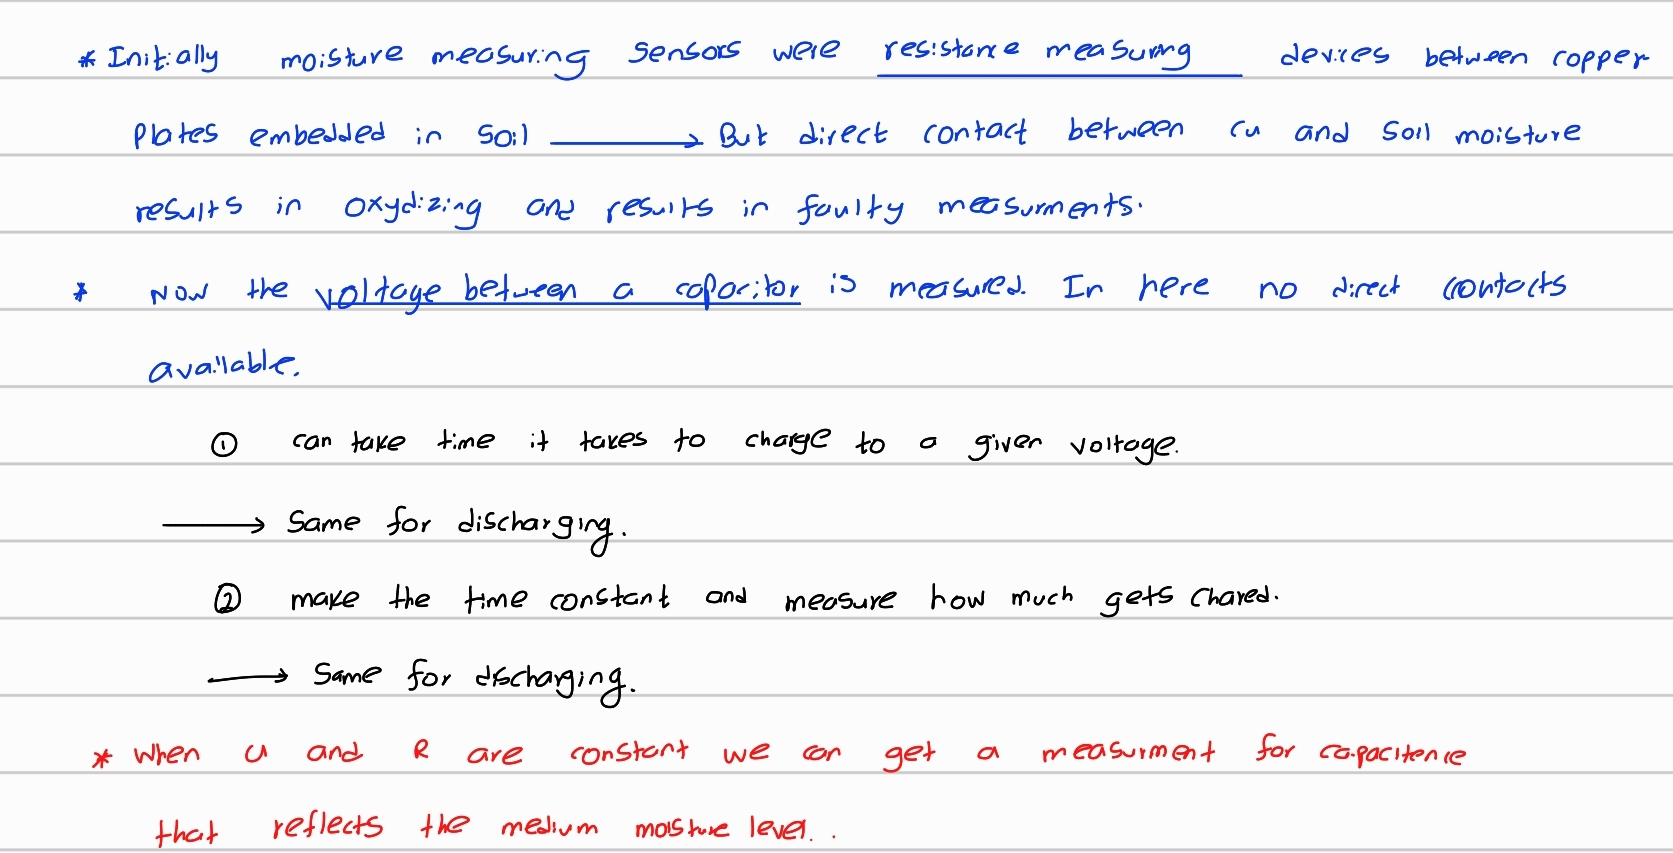 * Initially moisture measuring sensors were resistance measuring devices between copper
Plates embedded in soil → But direct contact between cu and soil moisture
results in oxydizing and results in faulty measurments.
* Now the voltage between a capacitor is measured. In here no direct contacts
available.
① can take time it takes to charge to a given voltage.
→ Same for discharging.
② make the time constant and measure how much gets chared.
→ Same for discharging.
* when u and R are constant we can get a measurment for capacitence
that reflects the medium moisture level. .